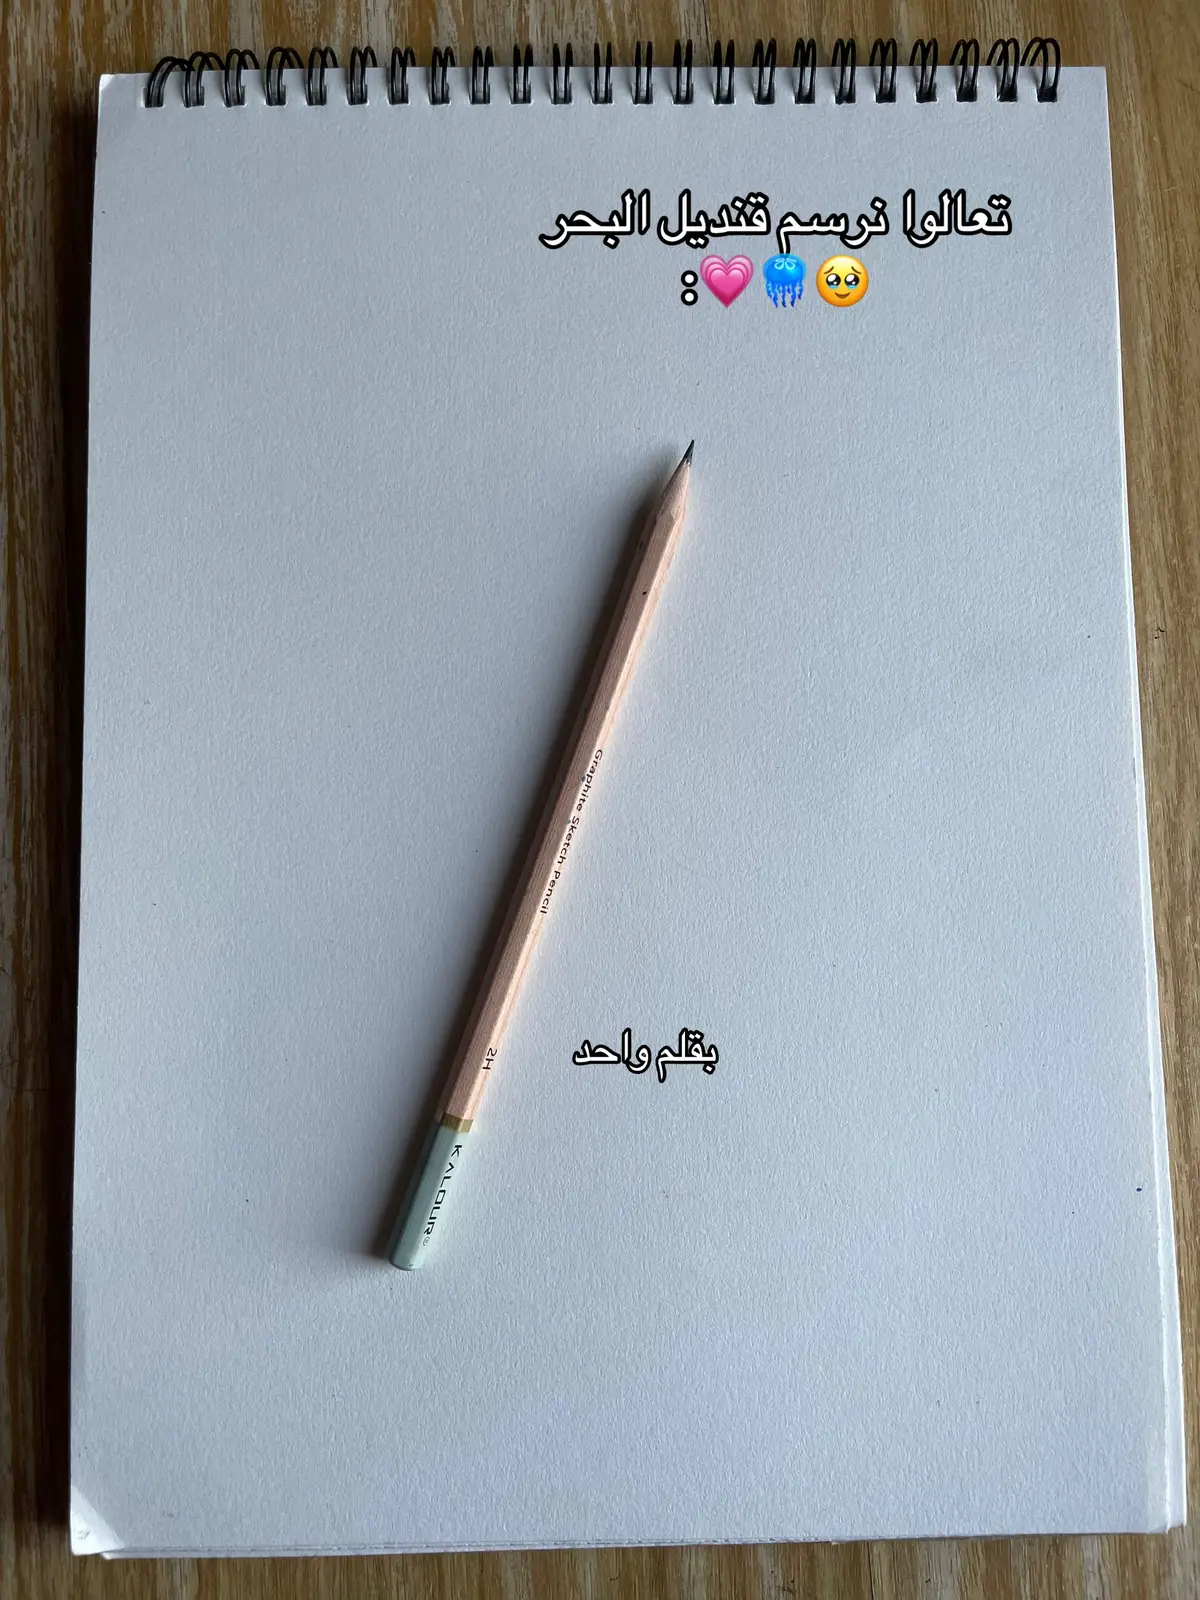 تعالوا نرسم قنديل البحر
🥹🪼💗:
Graphite Sketch Pencil
بقلم واحد
2H
KALOUR®